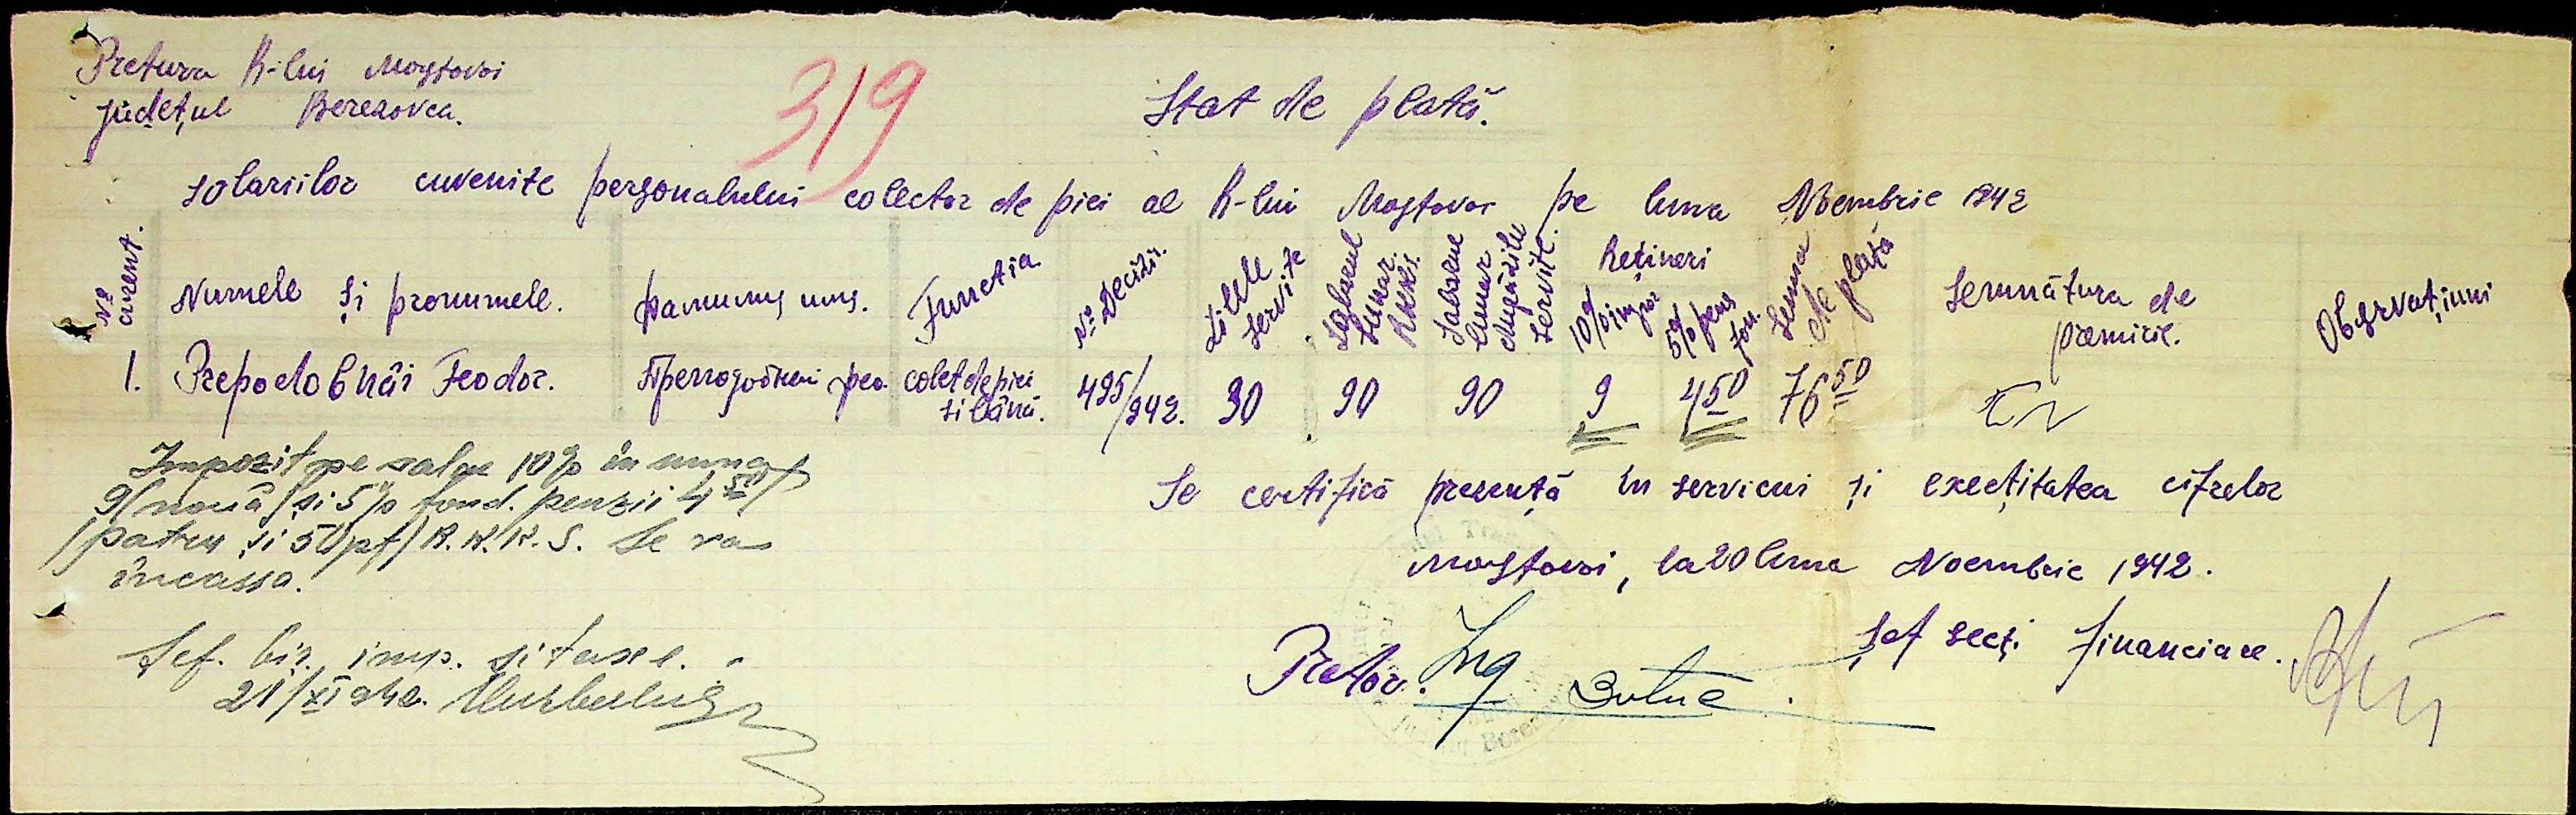 Pretura R-lui Mostovoi
județul Berezovca.
319
Stat de plată.
solariilor cuvenite personalului colector de piei al R-lui Mostovoi pe luna Noembrie 1942
№ curent.
Numele și pronumele.
Фамилия имя.
Functia
№ Decizii.
Zilele servite
Salarul lunar
Salarul lunar servite.
Rețineri
10% impoz
5% pens fon.
Suma de plată
Semnătura de primire.
Observațiuni
1. Prepodobnâi Feodor. colet de piei si lână. 495/942. 30 90 90 9 4 50 76 50
Impozit pe salar 10% în suma
9/nouă/și 5% fond. penzii 4 50
/patru și 50 pf/ R.K.K.S. Se va
încassa.
Șef. bir. imp. si taxe.
21/XI 942.
Se certifică prezență în servicui și exectitatea cifrelor
Mostovoi, la 20 luna Noembrie 1942.
Pretor. Ing
Șef secți financiare.